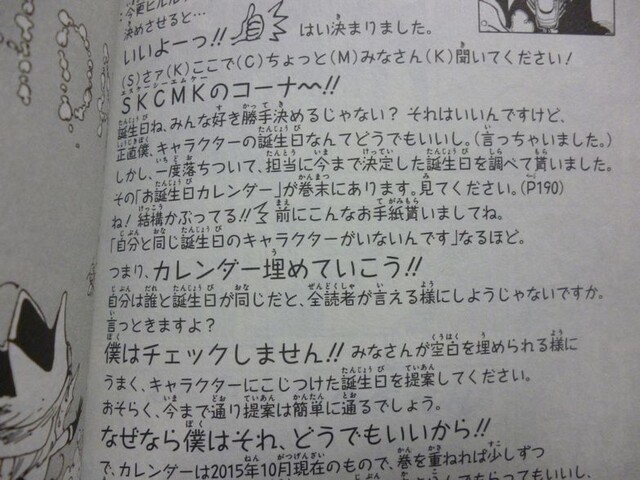 決めさせると…
いいよーっ!! はい決まりました。
(S)さァ(K)ここで(C)ちょっと(M)みなさん(K)聞いてください!
SKCMKのコーナ〜!!
誕生日ね、みんな好き勝手決めるじゃない? それはいいんですけど、
正直僕、キャラクターの誕生日なんてどうでもいいし。(言っちゃいました。)
しかし、一度落ちついて、担当に今まで決定した誕生日を調べて貰いました。
その「お誕生日カレンダー」が巻末にあります。見てください。(P190)
ね! 結構かぶってる!! 前にこんなお手紙貰いましてね。
「自分と同じ誕生日のキャラクターがいないんです」なるほど。
つまり、カレンダー埋めていこう!!
自分は誰と誕生日が同じだと、全読者が言える様にしようじゃないですか。
言っときますよ?
僕はチェックしません!! みなさんが空白を埋められる様に
うまく、キャラクターにこじつけた誕生日を提案してください。
おそらく、今まで通り提案は簡単に通るでしょう。
なぜなら僕はそれ、どうでもいいから!!
で、カレンダーは2015年10月現在のもので、巻を重ねれば少しずつ